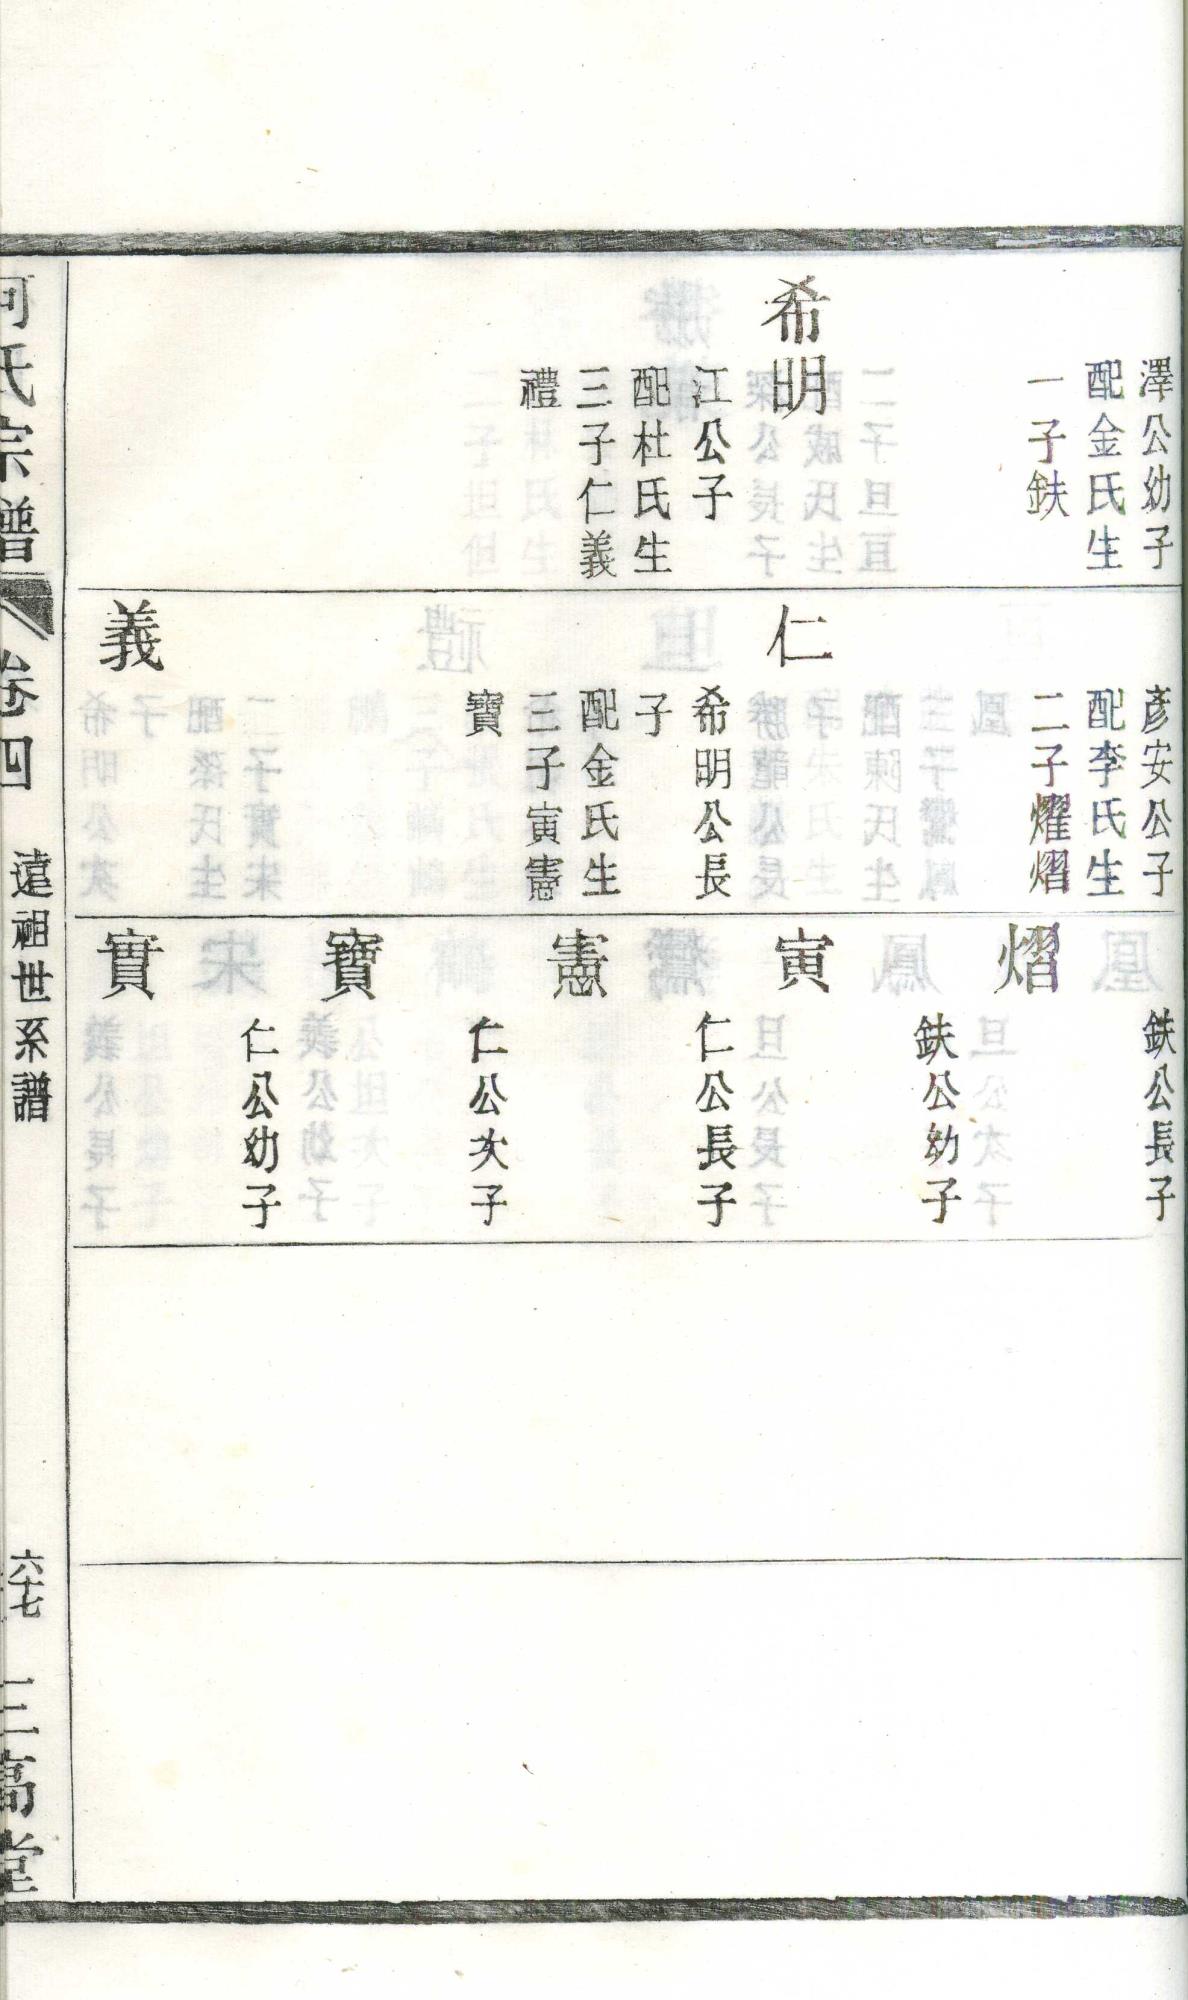 澤公幼子
配金氏生
一子鈇
希明
江公子
配杜氏生
三子仁義
禮
彥安公子
配李氏生
二子燿熠
仁
希明公長
子
配金氏生
三子寅憲
寶
義
鈇公長子
熠
鈇公幼子
寅
仁公長子
憲
仁公次子
寶
仁公幼子
實
何氏宗譜
卷四
遠祖世系譜
六十七
三高堂